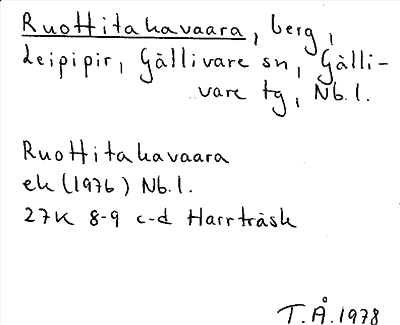 Ruottitakavaara, berg,
Leipipir, Gällivare sn, Gälli-
vare tg, Nb. l.
Ruottitakavaara
ek (1976) Nb. l.
27K 8-9 c-d Harrträsk
T.Å. 1978